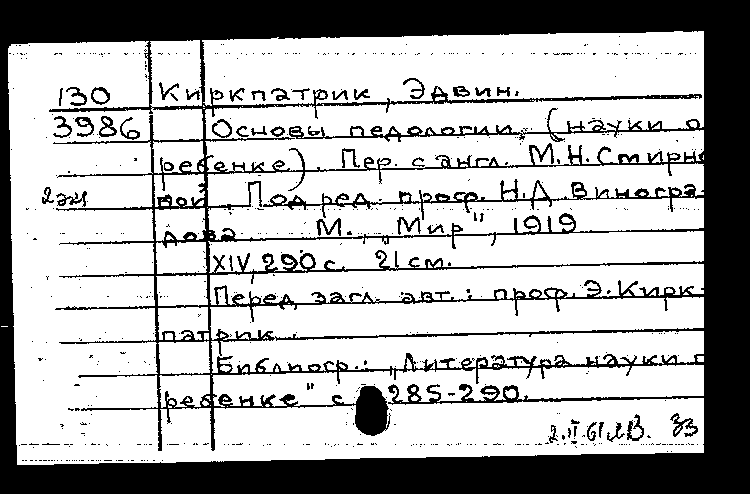 130 Киркпатрик, Эдвин.
3986 Основы педологии, (науки о
ребенке). Пер. с англ. М.Н. Смирно
2 экз вой. Под ред. проф. Н.Д. Виногра-
дова М., „Мир", 1919
XIV, 290 с. 21 см.
Перед загл. авт.: проф. Э. Кирк-
патрик.
Библиогр.: „Литература науки о
ребенке" с 285-290.
2.II.61